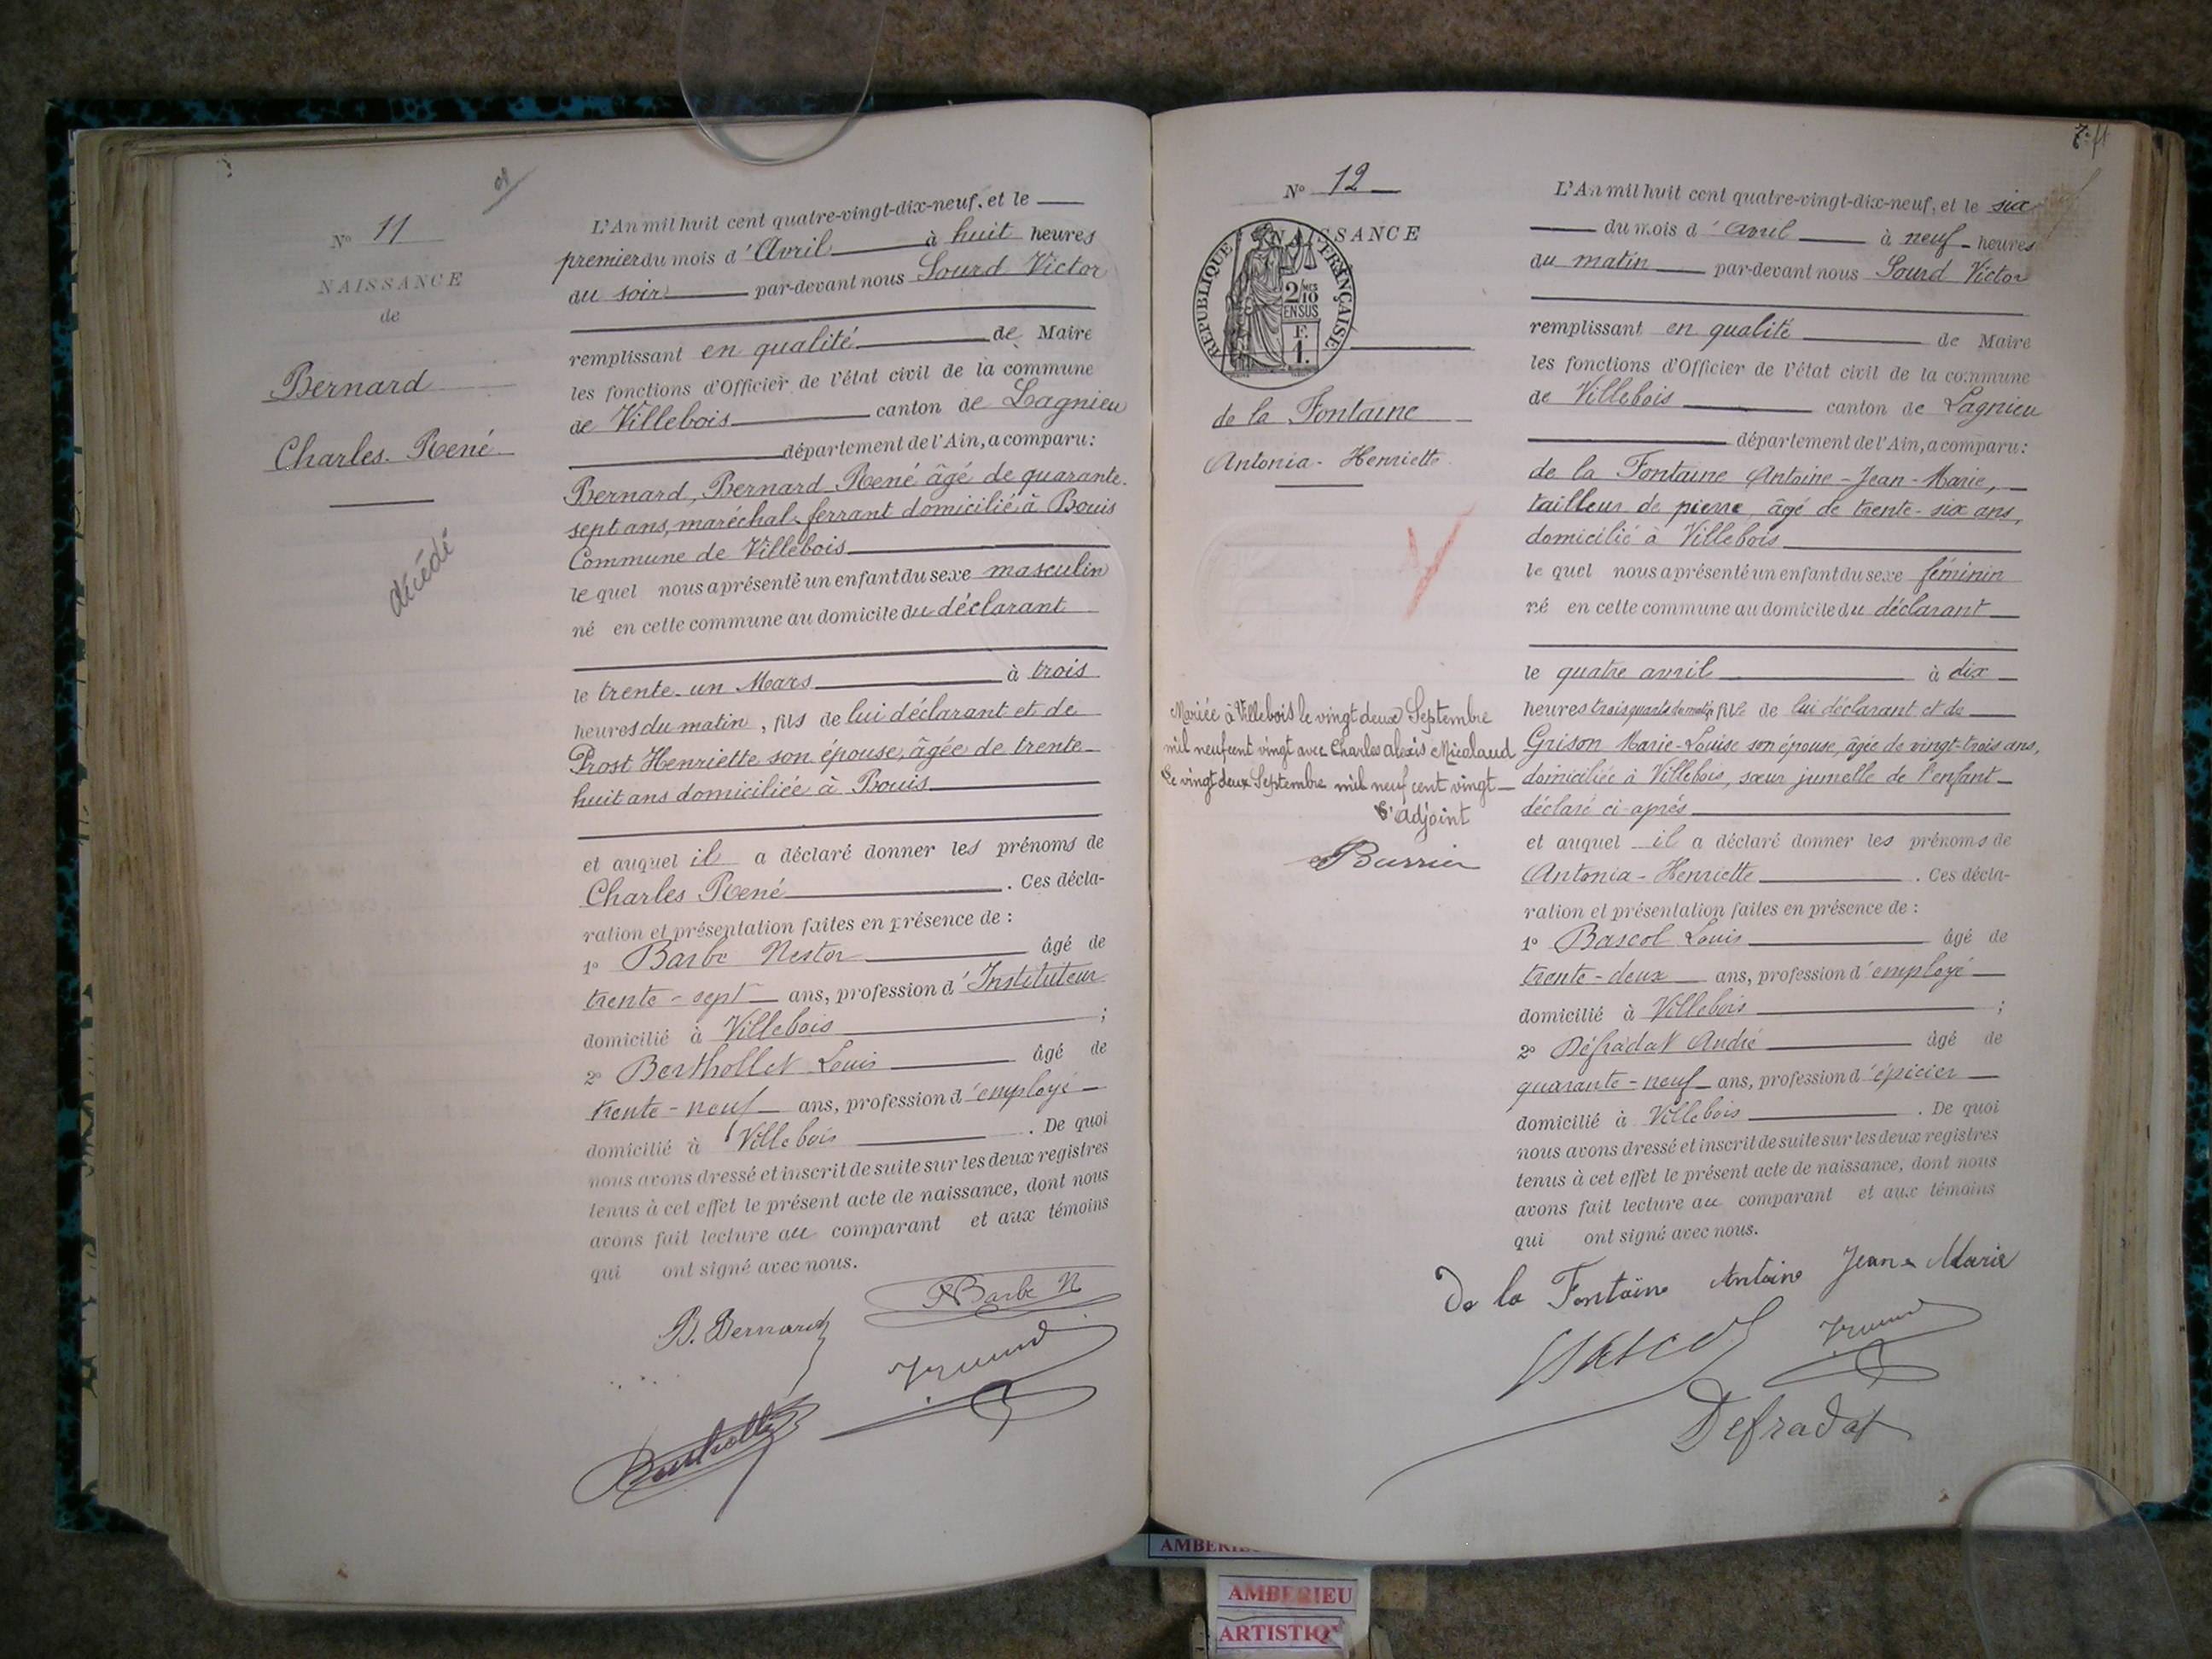 N° 11
NAISSANCE
de
Bernard
Charles-René
décédé
L'An mil huit cent quatre-vingt-dix-neuf, et le
premier du mois d'Avril à huit heures
du soir par-devant nous Sourd Victor
remplissant en qualité de Maire
les fonctions d'Officier de l'état civil de la commune
de Villebois canton de Lagnieu
département de l'Ain, a comparu:
Bernard, Bernard René âgé de quarante-
sept ans, maréchal-ferrant domicilié à Bouis
Commune de Villebois
le quel nous a présenté un enfant du sexe masculin
né en cette commune au domicile du déclarant
le trente-un Mars à trois
heures du matin, fils de lui déclarant et de
Prost Henriette son épouse, âgée de trente-
huit ans domiciliée à Bouis
et auquel il a déclaré donner les prénoms de
Charles René. Ces décla-
ration et présentation faites en présence de:
1° Barbe Nestor âgé de
trente-sept ans, profession d'Instituteur
domicilié à Villebois;
2° Berthollet Louis âgé de
trente-neuf ans, profession d'employé
domicilié à Villebois. De quoi
nous avons dressé et inscrit de suite sur les deux registres
tenus à cet effet le présent acte de naissance, dont nous
avons fait lecture au comparant et aux témoins
qui ont signé avec nous.
B. Bernard
Barbe N
Berthollet
N° 12
NAISSANCE
REPUBLIQUE FRANÇAISE
2/10 MES
EN SUS
F.
1.
de la Fontaine
Antonia-Henriette
Mariée à Villebois le vingt deux Septembre
mil neuf cent vingt avec Charles Alexis Micolaud
Le vingt deux Septembre mil neuf cent vingt
L'adjoint
L'An mil huit cent quatre-vingt-dix-neuf, et le six
du mois d'avril à neuf heures
du matin par-devant nous Sourd Victor
remplissant en qualité de Maire
les fonctions d'Officier de l'état civil de la commune
de Villebois canton de Lagnieu
département de l'Ain, a comparu:
de la Fontaine Antoine-Jean-Marie,
tailleur de pierre, âgé de trente-six ans,
domicilié à Villebois
le quel nous a présenté un enfant du sexe féminin
né en cette commune au domicile du déclarant
le quatre avril à dix
heures trois quarts du matin, fille de lui déclarant et de
Grison Marie-Louise son épouse, âgée de vingt-trois ans,
domiciliée à Villebois, sœur jumelle de l'enfant
déclaré ci-après
et auquel il a déclaré donner les prénoms de
Antonia-Henriette. Ces décla-
ration et présentation faites en présence de:
1° Bascol Louis âgé de
trente-deux ans, profession d'employé
domicilié à Villebois;
2° Défradat André âgé de
quarante-neuf ans, profession d'épicier
domicilié à Villebois. De quoi
nous avons dressé et inscrit de suite sur les deux registres
tenus à cet effet le présent acte de naissance, dont nous
avons fait lecture au comparant et aux témoins
qui ont signé avec nous.
De la Fontaine Antoine Jean-Marie
Bascol
Defradat
AMBERIEU
ARTISTIQ